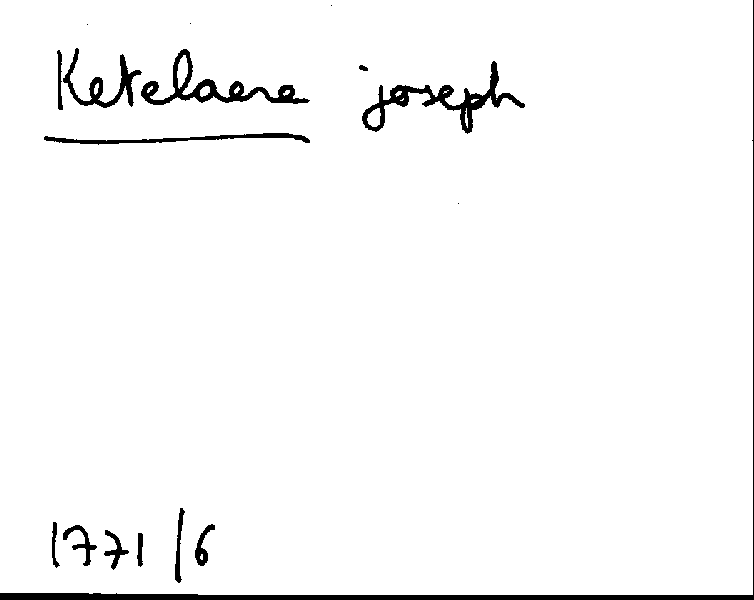 Ketelaere joseph
1771/6